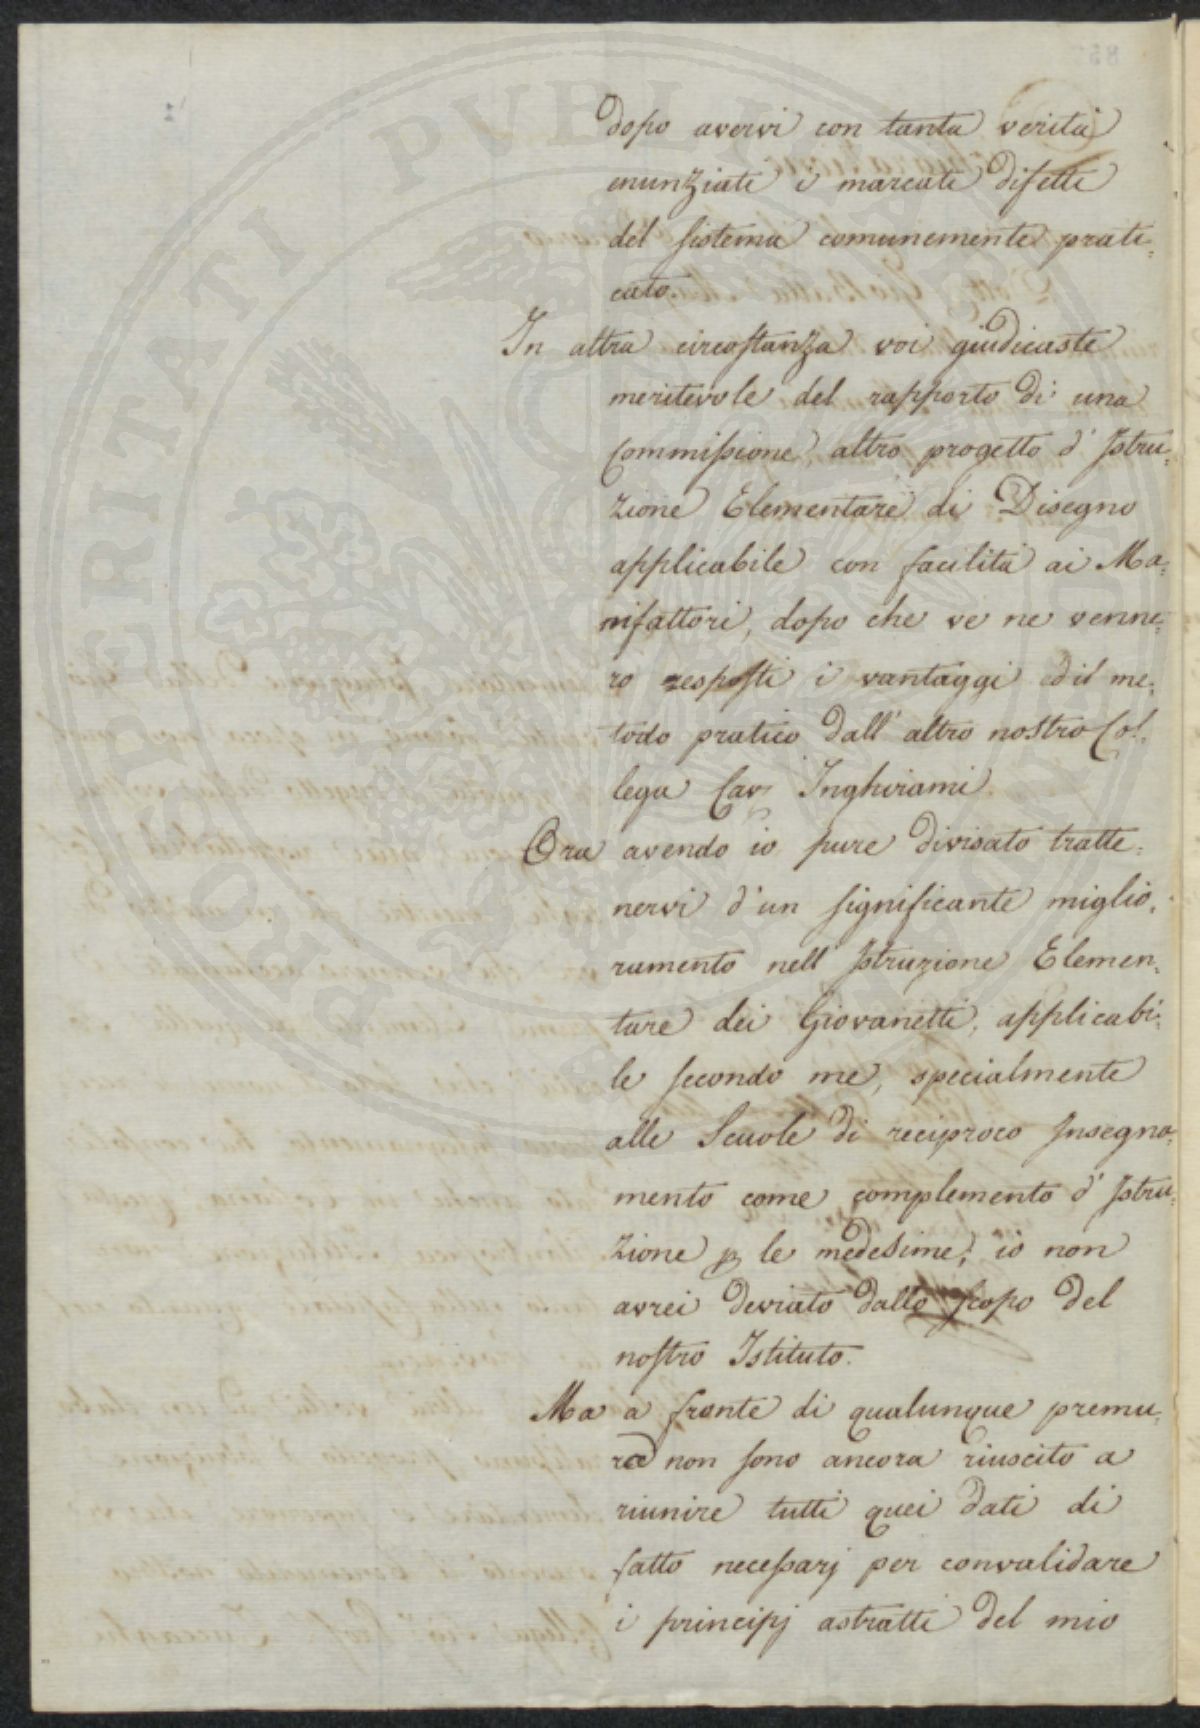 dopo avervi con tanta verità
enunziati i marcati difetti
del sistema comunemente prati=
cato.
In altra circostanza voi giudicaste
meritevole del rapporto di una
Commissione, altro progetto d'Istru=
zione Elementare di Disegno
applicabile con facilità ai Ma=
nifattori, dopo che ve ne venne=
ro resposti i vantaggi ed il me=
todo pratico dall'altro nostro Col=
lega Cav. Inghirami.
Ora avendo io pure divisato tratte=
nervi d'un significante miglio=
ramento nell'Istruzione Elemen=
tare dei Giovanetti, applicabi=
le secondo me, specialmente
alle Scuole di reciproco Insegna=
mento come complemento d'Istru=
zione p le medesime; io non
avrei deviato dallo scopo del
nostro Istituto.
Ma a fronte di qualunque premu=
ra non sono ancora riuscito a
riunire tutti quei dati di
fatto necessarj per convalidare
i principj astratti del mio
PROSPERITATI PUBLICAE